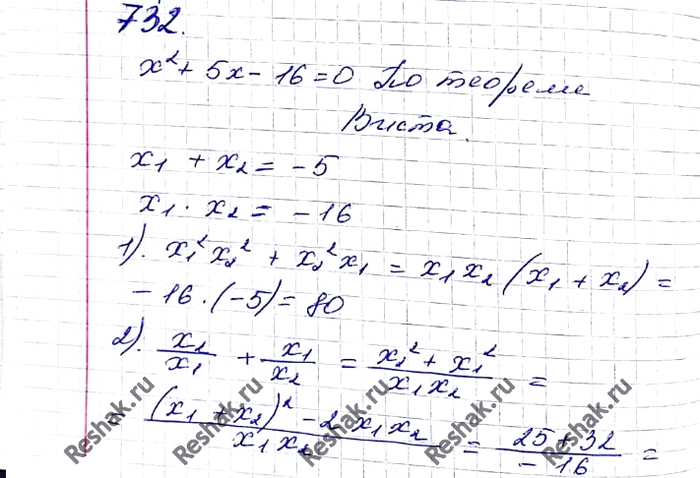 732.
x² + 5x - 16 = 0 По теореме
Виета.
x₁ + x₂ = -5
x₁ · x₂ = -16
1). x₁²x₂² + x₂²x₁ = x₁x₂(x₁ + x₂) =
-16·(-5) = 80
2). x₂/x₁ + x₁/x₂ = (x₂² + x₁²)/(x₁x₂) =
= ((x₁ + x₂)² - 2x₁x₂)/(x₁x₂) = (25 + 32)/(-16) =
Reshak.ru Reshak.ru Reshak.ru Reshak.ru Reshak.ru